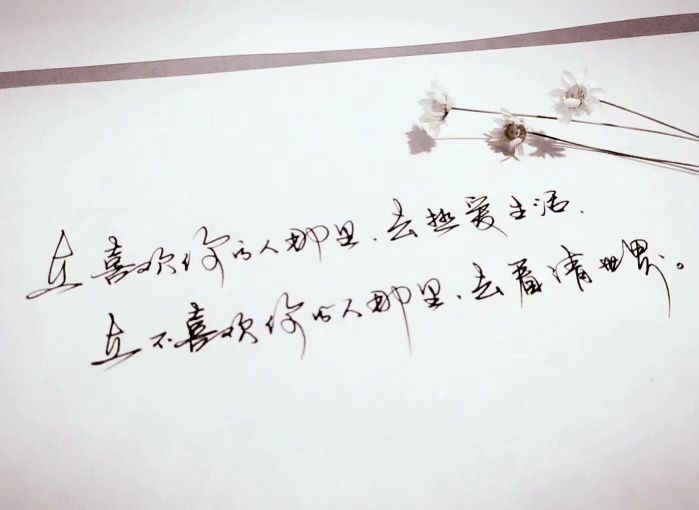 在喜欢你的人那里、去热爱生活、
在不喜欢你的人那里、去看清世界。